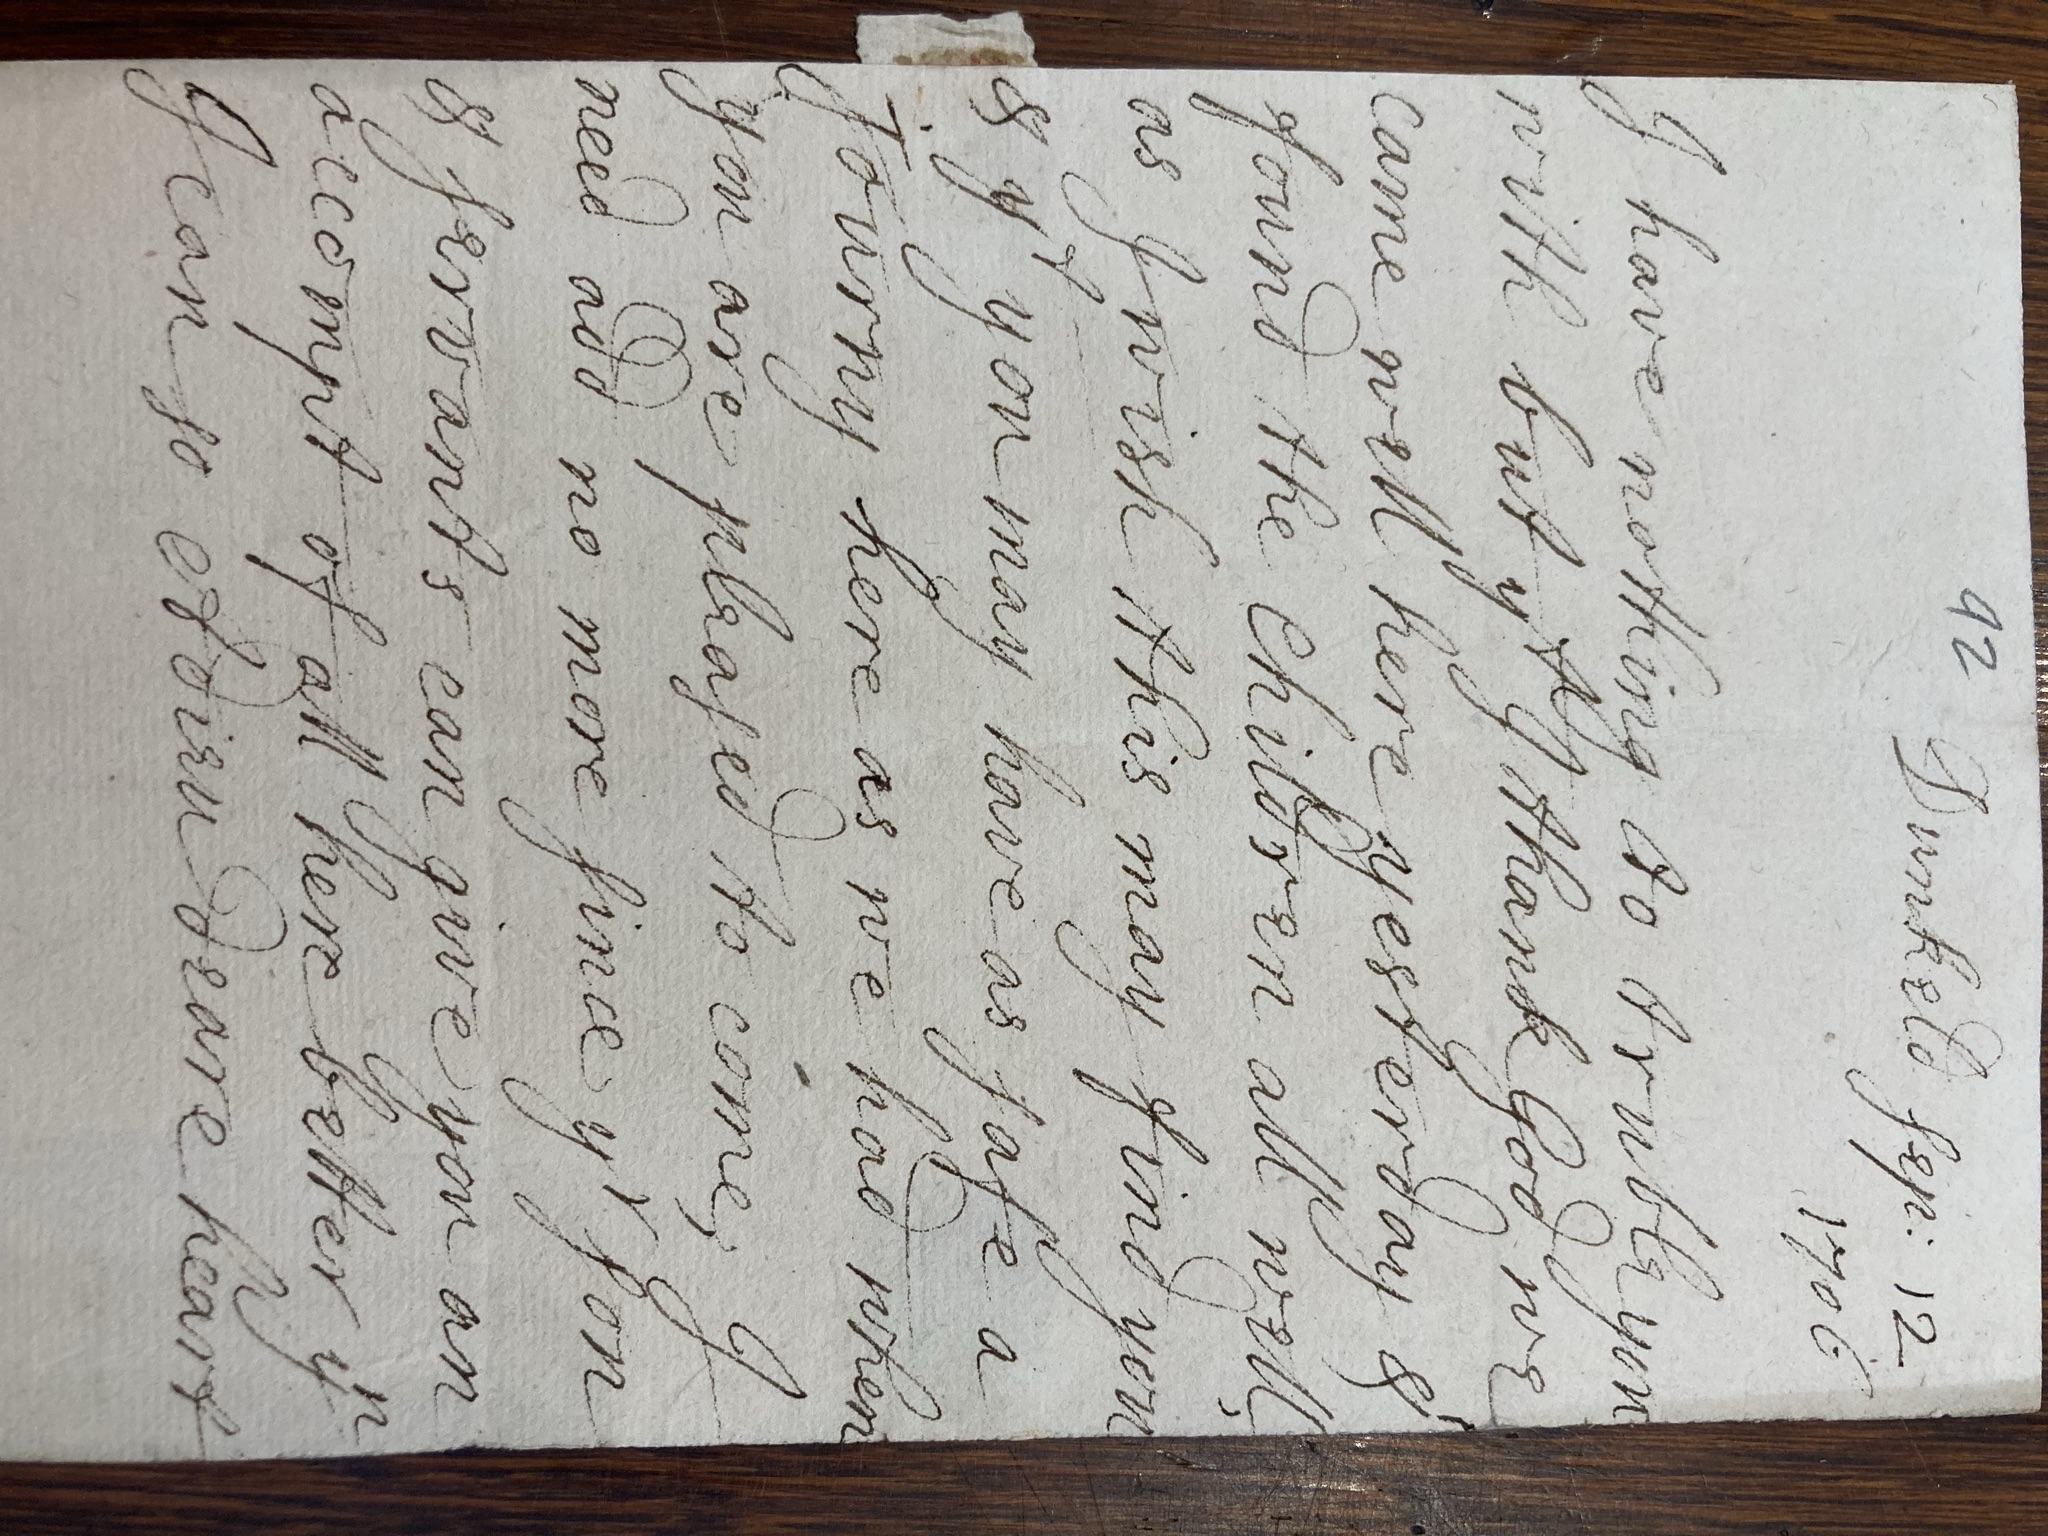 92
Dunkeld sep: 12
1706
I have nothing to truble you
with but yt I thank God we
came well here yesterday &
found the children all well,
as I wish this may find you
& yt you may have as safe a
journy here as we had when
you are pleased to come, I
need add no more since yr son
& servants can give you an
accompt of all here better yn
I can so Adieu deare heart